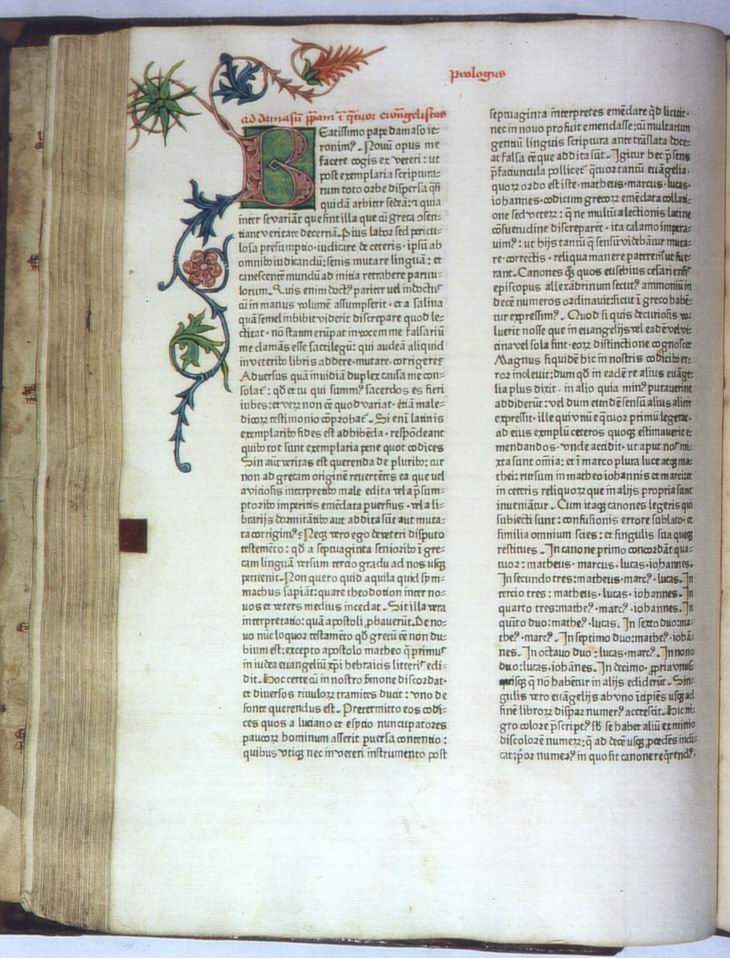 prologus
ad damasū ppam ī q̄tuor euāngelistas
Beatissimo pape damaso ie-
ronim⁹. Nouū opus me
facere cogis ex veteri: ut
post exemplaria scriptura-
rum toto orbe dispersa q̄si
quidā arbiter sedeā: ⁊ quia
inter se variāt que sint illa que cū greca ɔsen-
tiant veritate decernā. Pius labor sed pericu-
losa presumptio: iudicare de ceteris: ipsū ab
omnibȝ iudicandū: senis mutare linguā: et
canescentē mundū ad initia retrahere paruu-
lorum. Quis enim doct⁹ pariter vel indoctus
cū in manus volumē assumpserit: et a saliua
quā semel imbibit viderit discrepare quod le-
ctitat: nō statim erūpat in vocem me falsariū
me clamās esse sacrilegū: qui audeā aliquid
in veteribȝ libris addere: mutare: corrigere?
Aduersus quā inuidiā duplex causa me con-
solat᷑: qd̄ et tu qui summ⁹ sacerdos es fieri
iubes: et verū non eē quod variat: etiā male-
dicoꝝ testimonio cōprobat᷑. Si eni latinis
exemplaribȝ fides est adhibēda: respōdeant
quibȝ: tot sunt exemplaria pene quot codices
Sin aūt veritas est querenda de pluribȝ: cur
non ad grecam originē reuertētes ea que vel
a viciosis interpretibȝ male edita vel a p̄sum-
ptoribȝ imperitis emēdata p̲uersius: vel a li-
brarijs dormitātibȝ aut addita sūt aut muta-
ta corrigim⁹? Neqȝ vero ego de veteri disputo
testamēto: qd̄ a septuaginta senioribȝ ī gre-
cam linguā versum tercio gradu ad nos usqȝ
peruenit. Non quero quid aquila quid sym-
machus sapiāt: quare theodotion inter no-
uos et veteres medius incedat. Sit illa vera
interpretatio: quā apostoli ꝓbauerūt. De no-
uo nūc loquor testamēto qd̄ grecū eē non du-
bium est: excepto apostolo matheo q̄ primus
in iudea euangeliū xp̄i hebraicis litteris edi-
dit. Hoc certe cū in nostro sermone discordat
et diuersos riuuloꝝ tramites ducit: vno de
fonte querendus est. Pretermitto eos codi-
ces quos a luciano et esitio nuncupatores
paucoꝝ hominum asserit p̲uersa contentio:
quibus vtiqȝ nec in veteri instrumento post
septuaginta interpretes emēdare qd̄ licuit:
nec in nouo profuit emendasse: cū multarum
gentiū linguis scriptura ante trāslata doce-
at falsa eē que addita sūt. Igitur hec p̄sens
p̄faciuncula pollicet᷑ q̄tuor tantū euāgelia:
quoꝝ ordo est iste: matheus: marcus: lucas:
iohannes: codicum grecoꝝ emēdata collati-
one sed veteꝝ: q̄ ne multū a lectionis latine
cōsuetudine discreparēt: ita calamo impera-
uim⁹: ut hijs tantū q̄ sensū videbātur muta-
re: correctis: reliqua manere pateremur ut fue-
rant. Canones qȝ quos eusebius cesariensis
episcopus allexādrinum secut⁹ ammoniū in
decē numeros ordinauit: sicut ī greco habēt᷑
tur expressim⁹. Quod si quis de curiosis vo-
luerit nosse que in euangelijs vel eadē vel vi-
cina vel sola sint: eoꝝ distinctione cognoscat
Magnus siquidē hic in nostris codicibȝ er-
ror inoleuit: dum qd̄ in eadē re alius euāge-
lia plus dixit: in alio quia min⁹ putauerint
addiderūt: vel dum eundē sensū alius aliter
expressit: ille qui vnū e q̄tuor primū legerat:
ad eius exemplū ceteros quoqȝ estimauerit
emendandos: vnde accidit: ut aput nos mi-
xta sunt omīa: et ī marco plura luce atqȝ ma-
thei: rursum in matheo iohannis et marci: et
in ceteris reliquoꝝ que in alijs propria sunt
inueniātur. Cum itaqȝ canones legeris qui
subiecti sunt: confusionis errore sublato: et
similia omnium scies: et singulis sua queqȝ
restitues. In canone primo concordāt qua-
tuor: matheus: marcus: lucas: iohannes.
In secundo tres: matheus: marc⁹: lucas. In
tercio tres: matheus: lucas: iohannes. In
quarto tres: mathe⁹: marc⁹: iohannes. In
quīto duo: mathe⁹: lucas. In sexto duo: ma-
the⁹: marc⁹. In septimo duo: mathe⁹: iohā-
nes. In octauo duo: lucas: marc⁹. In nono
duo: lucas: iohānes. In decimo: ꝓpria vnus
quisqȝ q̄ nō habētur in alijs ediderūt. Sin-
gulis vero euāgelijs ab vno īcipiēs usqȝ ad
finē libroꝝ dispar numer⁹ accrescit. Hic ni-
gro colore p̄script⁹ sb̄ se habet aliū ex minio
discolorē numeꝝ: q̄ ad decē usqȝ ꝓcedēs indi-
cat: p̄or numer⁹ in quo sit canone reqrend⁹.